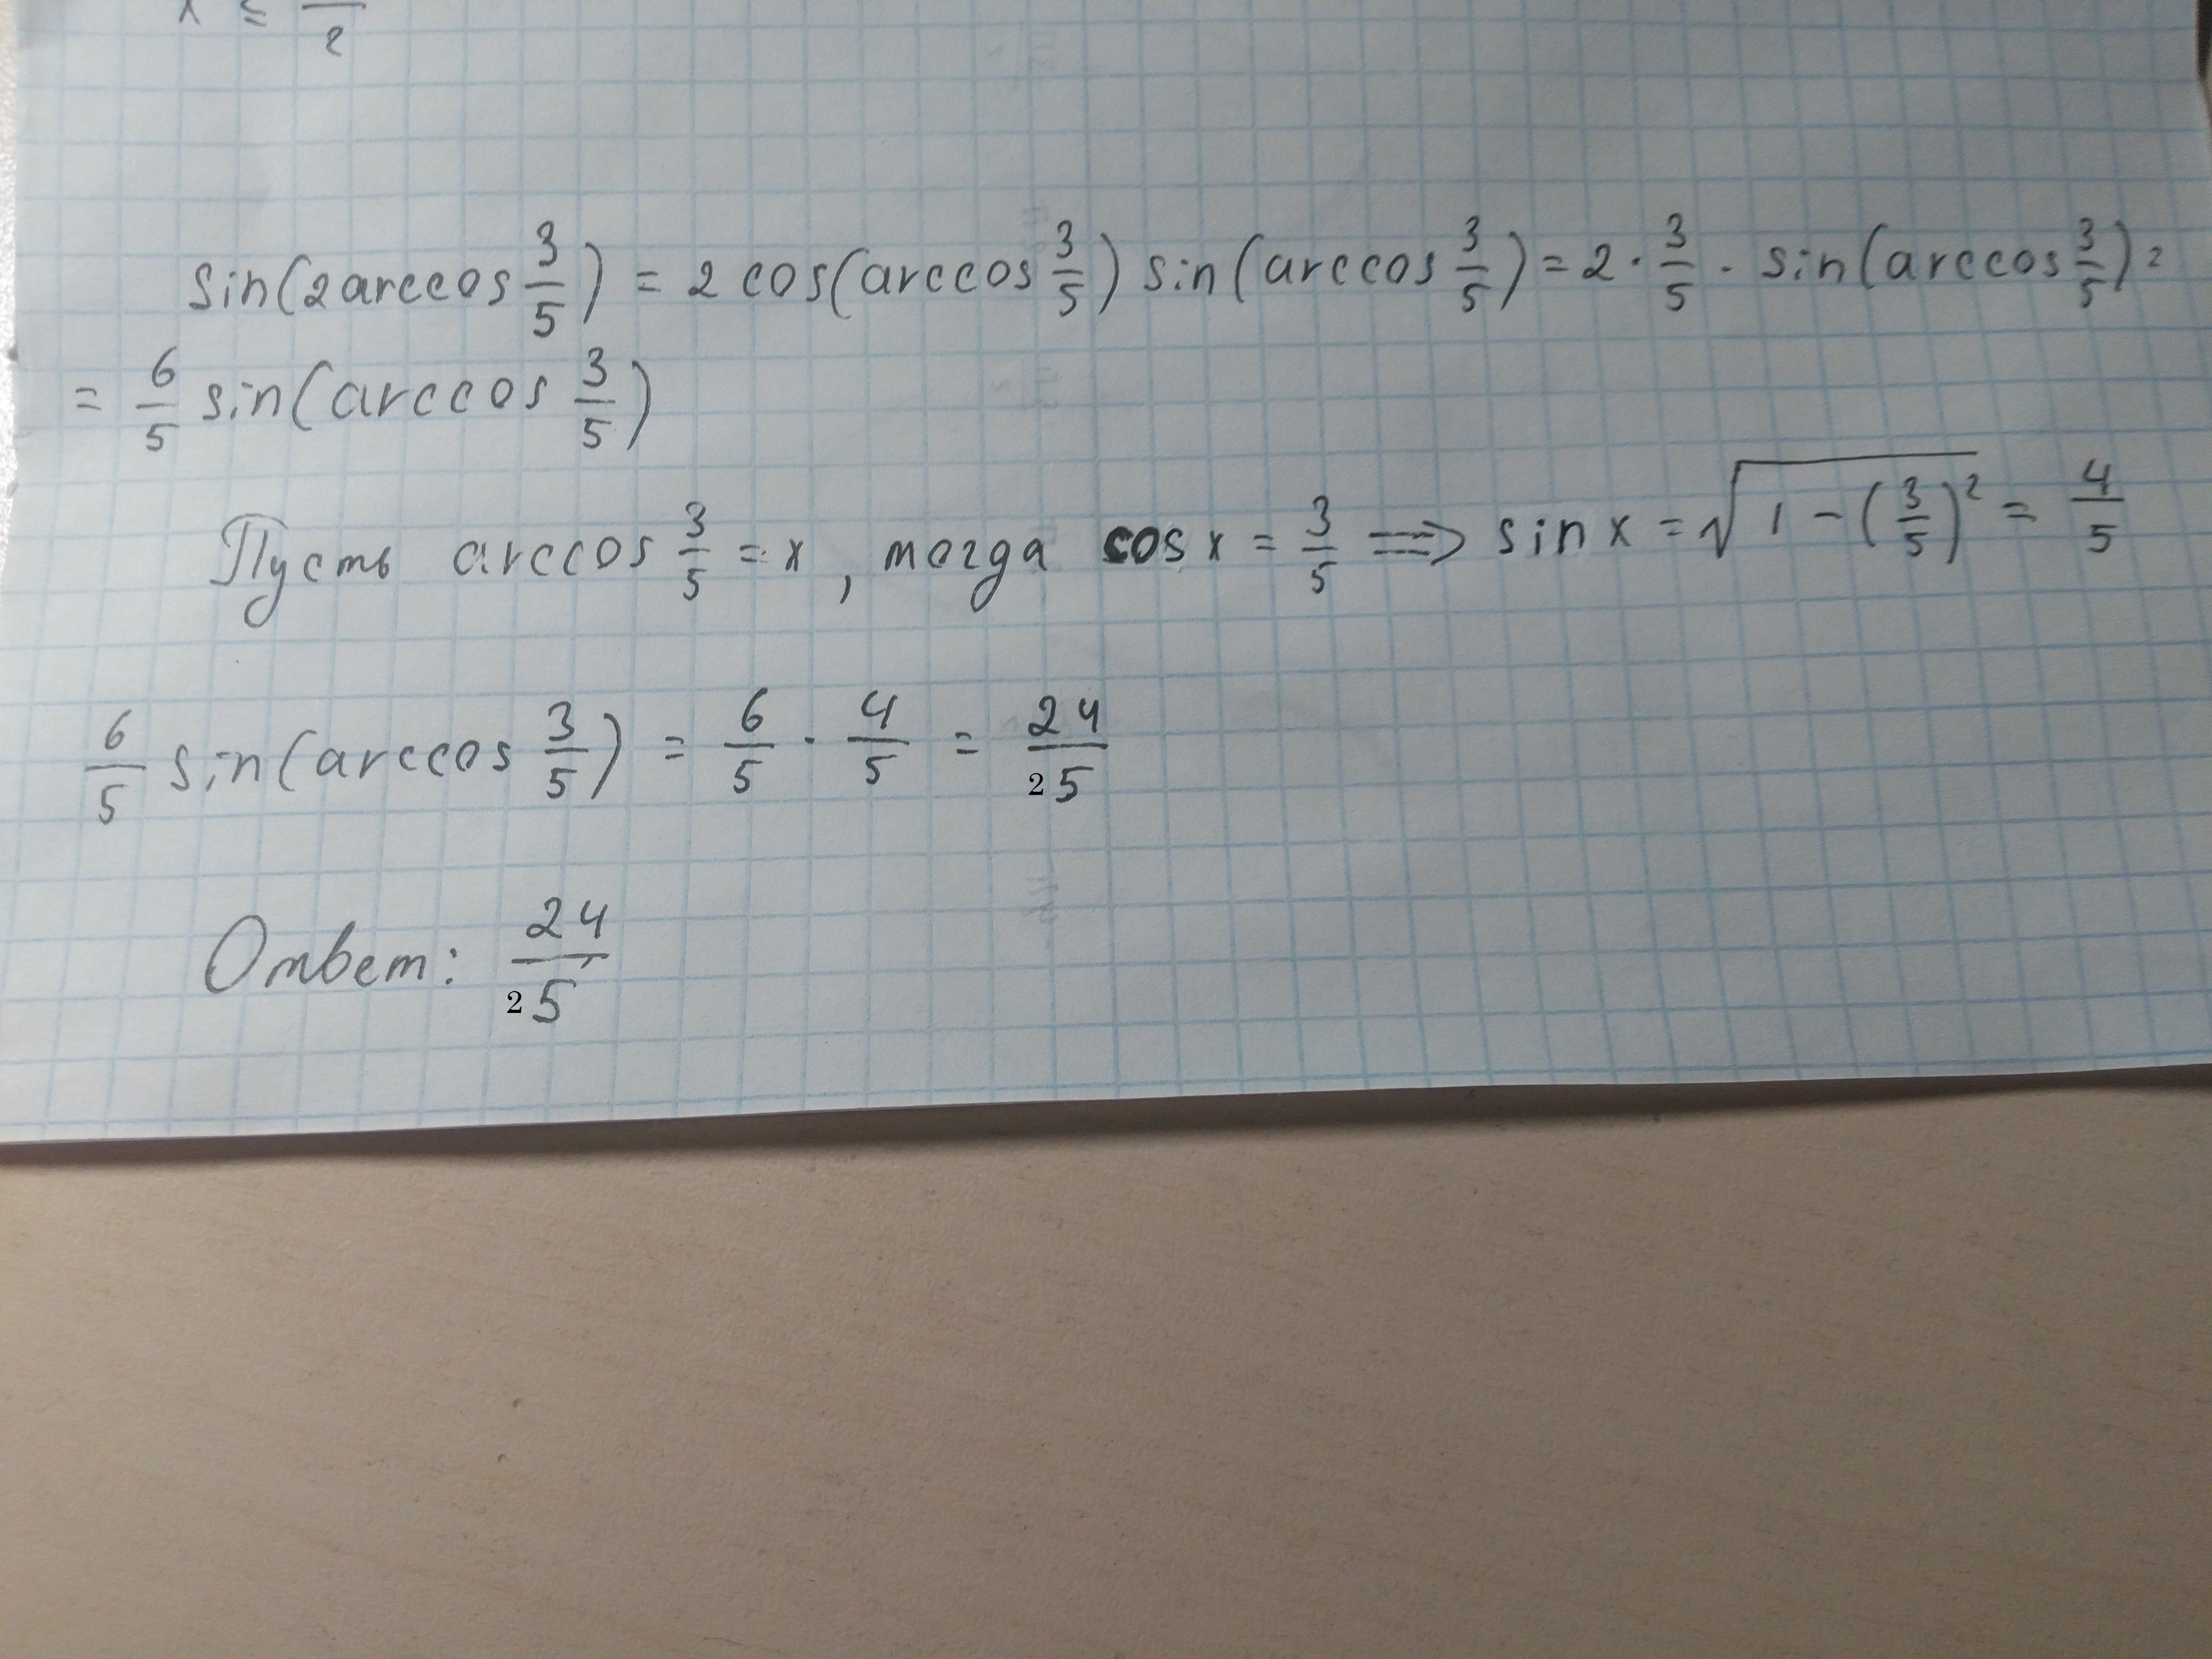 x = /2
sin(2arccos 3/5) = 2 cos(arccos 3/5) sin(arccos 3/5) = 2 · 3/5 · sin(arccos 3/5) =
= 6/5 sin(arccos 3/5)
Пусть arccos 3/5 = x, тогда cos x = 3/5 => sin x = √(1 - (3/5)²) = 4/5
6/5 sin(arccos 3/5) = 6/5 · 4/5 = 24/25
Ответ: 24/25